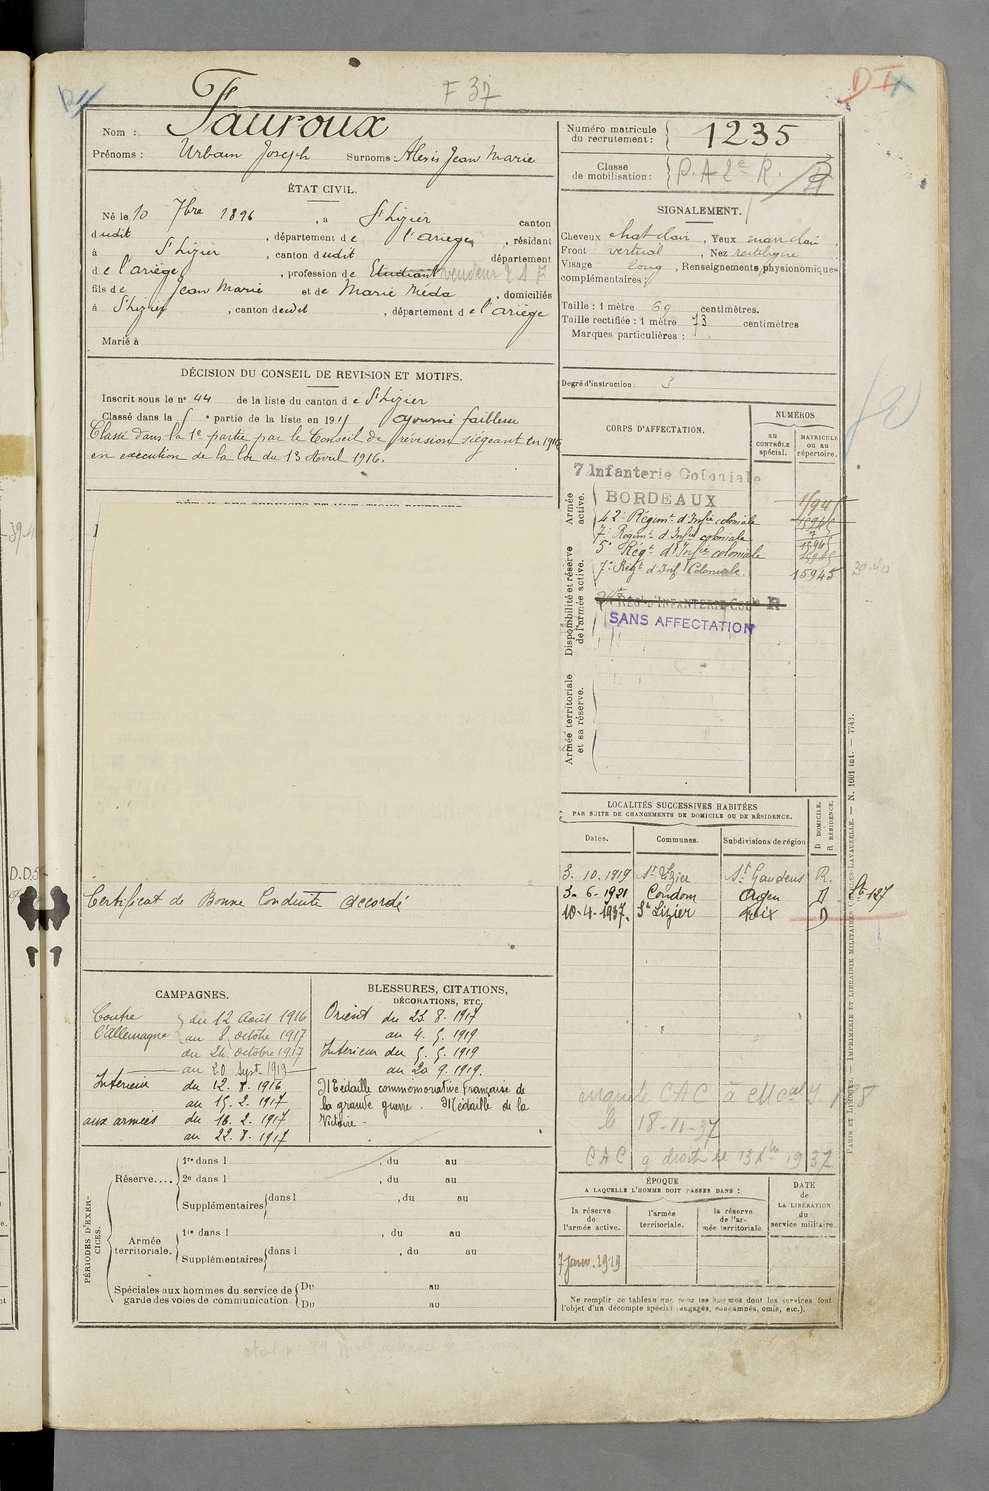 F 37
Nom : Fauroux
Prénoms : Urbain Joseph Surnoms : Alexis Jean Marie
ÉTAT CIVIL.
Né le 10 7bre 1896, à St Lizier canton
dudit, département de l'ariège, résidant
à St Lizier, canton dudit département
de l'ariège, profession de Etudiant vendeur
fils de Jean Marie et de Marie Méda, domiciliés
à St Lizier, canton dudit, département de l'ariège
Marié à
DÉCISION DU CONSEIL DE REVISION ET MOTIFS.
Inscrit sous le no 44 de la liste du canton de St Lizier
Classé dans la 5e partie de la liste en 1915 ajourné faiblesse
Classé dans la 1e partie par le Conseil de révision siégeant en 1916
en exécution de la loi du 13 Avril 1916.
Certificat de Bonne Conduite Accordé
CAMPAGNES.
Contre l'Allemagne
du 12 Août 1916
au 8 octobre 1917
du 24 octobre 1917
au 20 Sept 1919
Intérieur du 12. 8. 1916
au 15. 2. 1917
aux armées du 16. 2. 1917
au 22. 8. 1917
BLESSURES, CITATIONS,
DÉCORATIONS, ETC.
Orient du 23. 8. 1917
au 4. 5. 1919
Intérieur du 5. 5. 1919
au 20 9. 1919.
Médaille commémorative Française de
la grande guerre. Médaille de la
Victoire -
PÉRIODES D'EXERCICES.
Réserve....
1re dans l , du au
2e dans l , du au
Supplémentaires dans l , du au
Armée territoriale.
1re dans l , du au
Supplémentaires dans l , du au
Spéciales aux hommes du service de
garde des voies de communication.
Du au
Du au
Numéro matricule
du recrutement : 1235
Classe
de mobilisation : P. A 2e R.
SIGNALEMENT.
Cheveux chat clair, Yeux mar clair,
Front vertical, Nez rectiligne
Visage long, Renseignements physionomiques
complémentaires :
Taille : 1 mètre 69 centimètres.
Taille rectifiée : 1 mètre 73 centimètres
Marques particulières :
Degré d'instruction : 3
CORPS D'AFFECTATION.
NUMÉROS
au
CONTRÔLE
spécial.
MATRICULE
OU AU
répertoire.
Armée
active.
7 Infanterie Coloniale
BORDEAUX
42e Régimt d'Infie coloniale
7e Régimt d'Infie coloniale
5e Régt d'Infie coloniale
7e Régt d'Inf Coloniale. 15945
Disponibilité et réserve
de l'armée active.
RÉGt D'INFANTERIE COLe R
SANS AFFECTATION
Armée territoriale
et sa réserve.
LOCALITÉS SUCCESSIVES HABITÉES
PAR SUITE DE CHANGEMENTS DE DOMICILE OU DE RÉSIDENCE.
Dates. Communes. Subdivisions de région D DOMICILE. R RÉSIDENCE.
3. 10. 1919 St Lizier St Gaudens R.
3- 6- 1921 Condom Agen D
10-4-1937. St Lizier Foix D
le 18-11-37
CAC a droit le 1937
ÉPOQUE
A LAQUELLE L'HOMME DOIT PASSER DANS :
DATE
DE
LA LIBÉRATION
du
service militaire.
la réserve
de
l'armée active.
l'armée
territoriale.
la réserve
de l'ar-
mée territoriale.
7 janv. 1919
Ne remplir ce tableau que pour les hommes dont les services font
l'objet d'un décompte spécial (engagés, condamnés, omis, etc.).
PARIS ET LIMOGES. — IMPRIMERIE ET LIBRAIRIE MILITAIRES CHARLES-LAVAUZELLE. — N. 1001 int. — 7743.